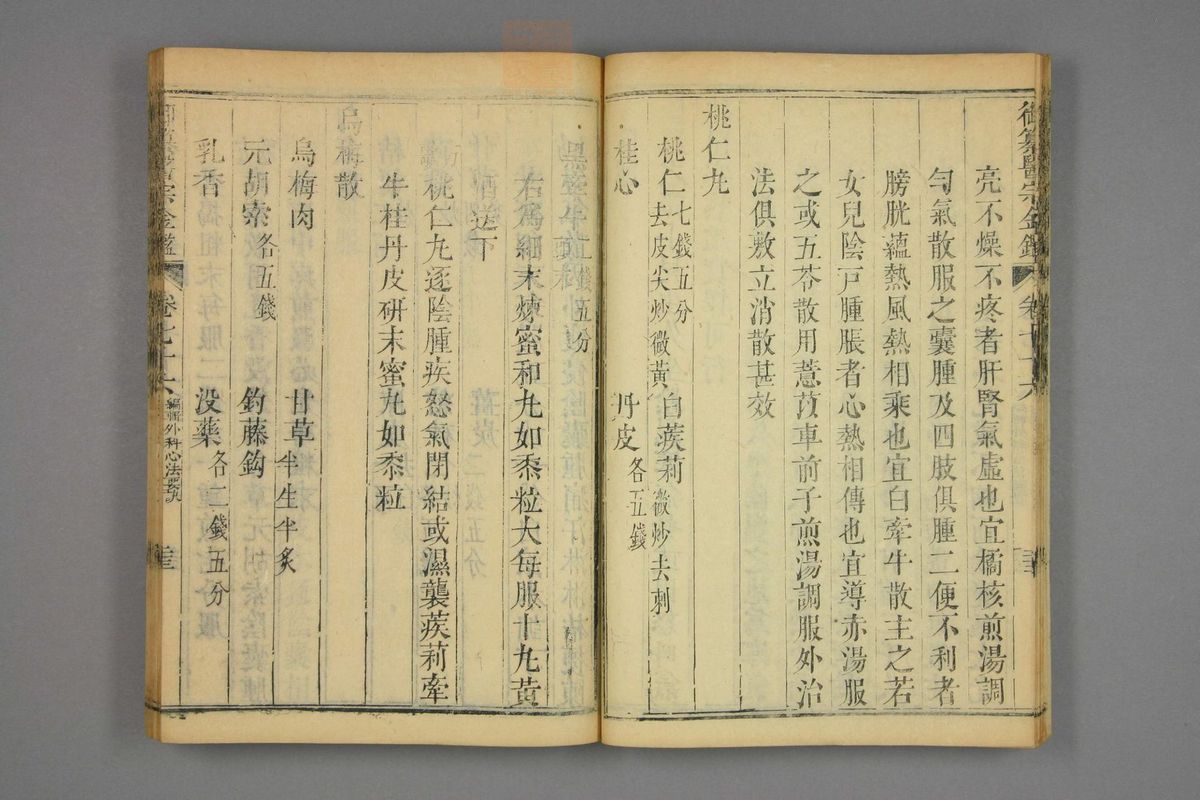 御纂醫宗金鑑 卷七十六
亮不燥不疼者肝腎氣虛也宜橘核煎湯調
勻氣散服之囊腫及四肢俱腫二便不利者
膀胱蘊熱風熱相乘也宜白牽牛散主之若
女兒陰戶腫脹者心熱相傳也宜導赤湯服
之或五苓散用薏苡車前子煎湯調服外治
法俱敷立消散甚效
桃仁丸
桃仁七錢五分去皮尖炒微黃 白蒺莉微炒去刺
桂心 丹皮各五錢
黑牽牛頭末二錢五分
右為細末煉蜜和丸如黍粒大每服十丸黃
送下
桃仁丸逐陰腫疾怒氣閉結或濕襲蒺莉牽
牛桂丹皮研末蜜丸如黍粒
烏梅散
烏梅肉 甘草半生半炙
元胡索各五錢 鈞藤鈎
乳香 沒藥各二錢五分
宗金鑑 卷七十六 編輯外科心法要訣 三